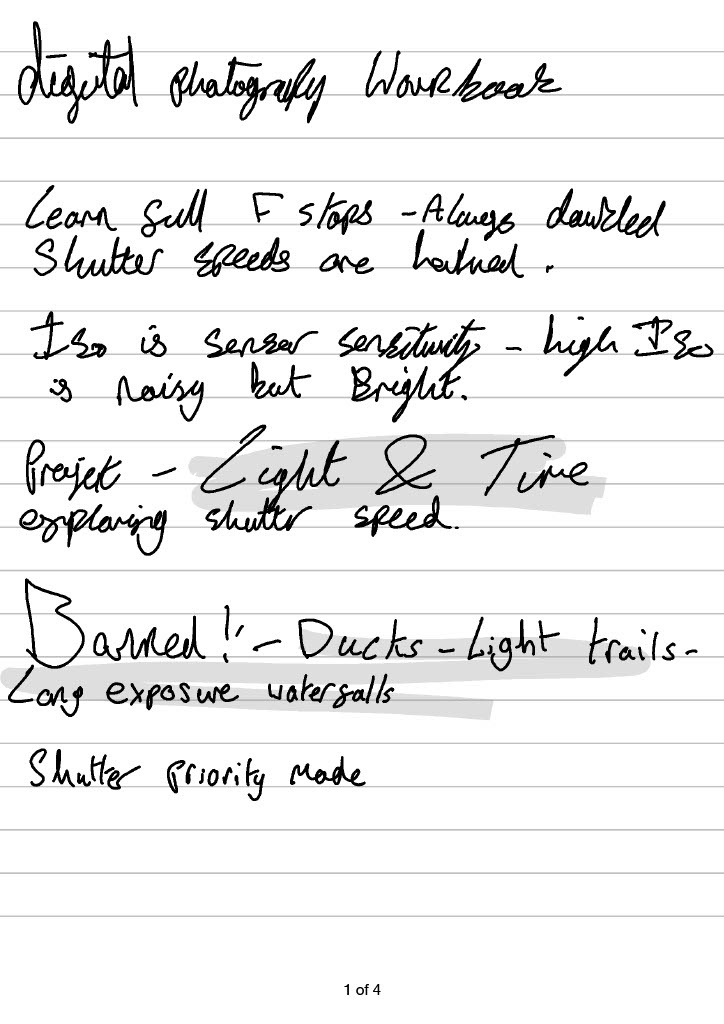 digital photography Workbook
Learn full F stops - Always doubled
Shutter speeds are halved.
ISO is sensor sensitivity - high ISO
is noisy but Bright.
Project - Light & Time
exploring shutter speed.
Banned! - Ducks - Light trails -
Long exposure waterfalls
Shutter priority mode
1 of 4